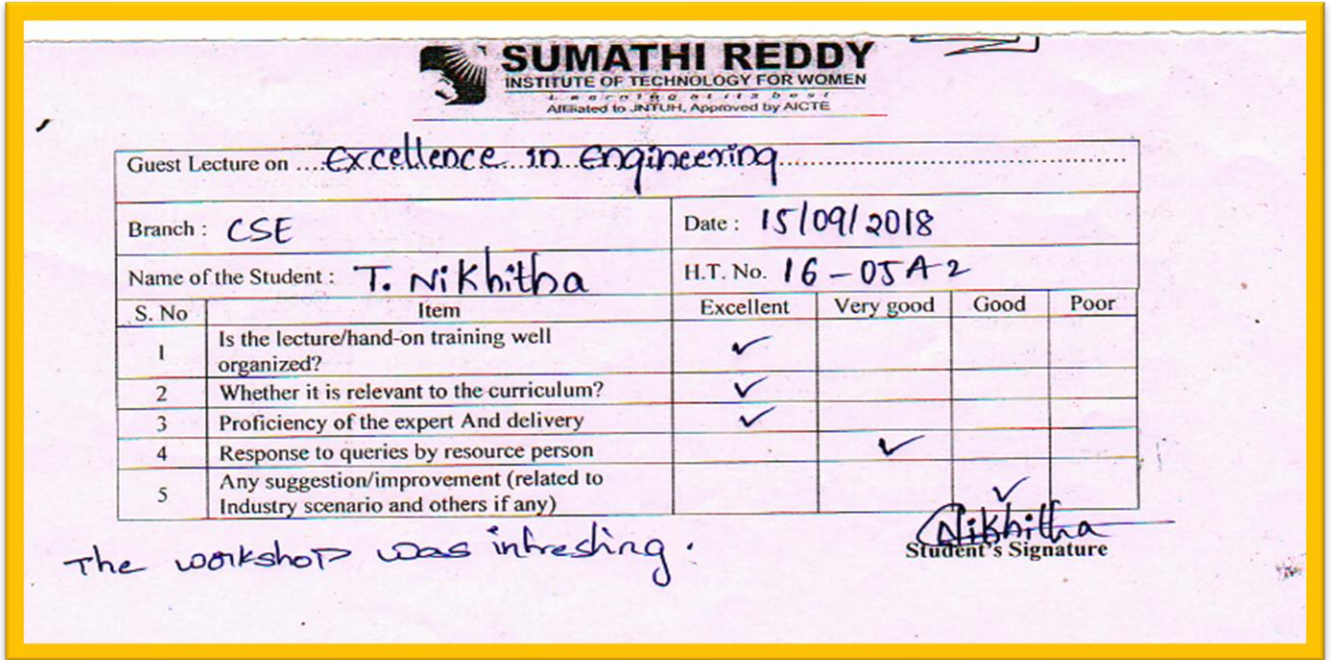 SUMATHI REDDY
INSTITUTE OF TECHNOLOGY FOR WOMEN
Learning at its best
Affiliated to JNTUH, Approved by AICTE
Guest Lecture on ...Excellence in Engineering...
Branch : CSE Date : 15/09/2018
Name of the Student : T. Nikhitha H.T. No. 16-05A2
S. No Item Excellent Very good Good Poor
1 Is the lecture/hand-on training well
organized? ✓
2 Whether it is relevant to the curriculum? ✓
3 Proficiency of the expert And delivery ✓
4 Response to queries by resource person ✓
5 Any suggestion/improvement (related to
Industry scenario and others if any) ✓
Nikhitha
Student's Signature
The workshop was intresting.